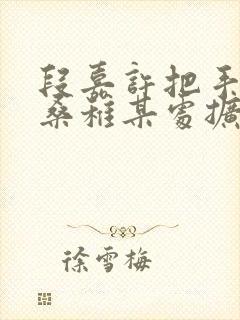 段嘉許把手
桑稚某處擴
徐雪梅